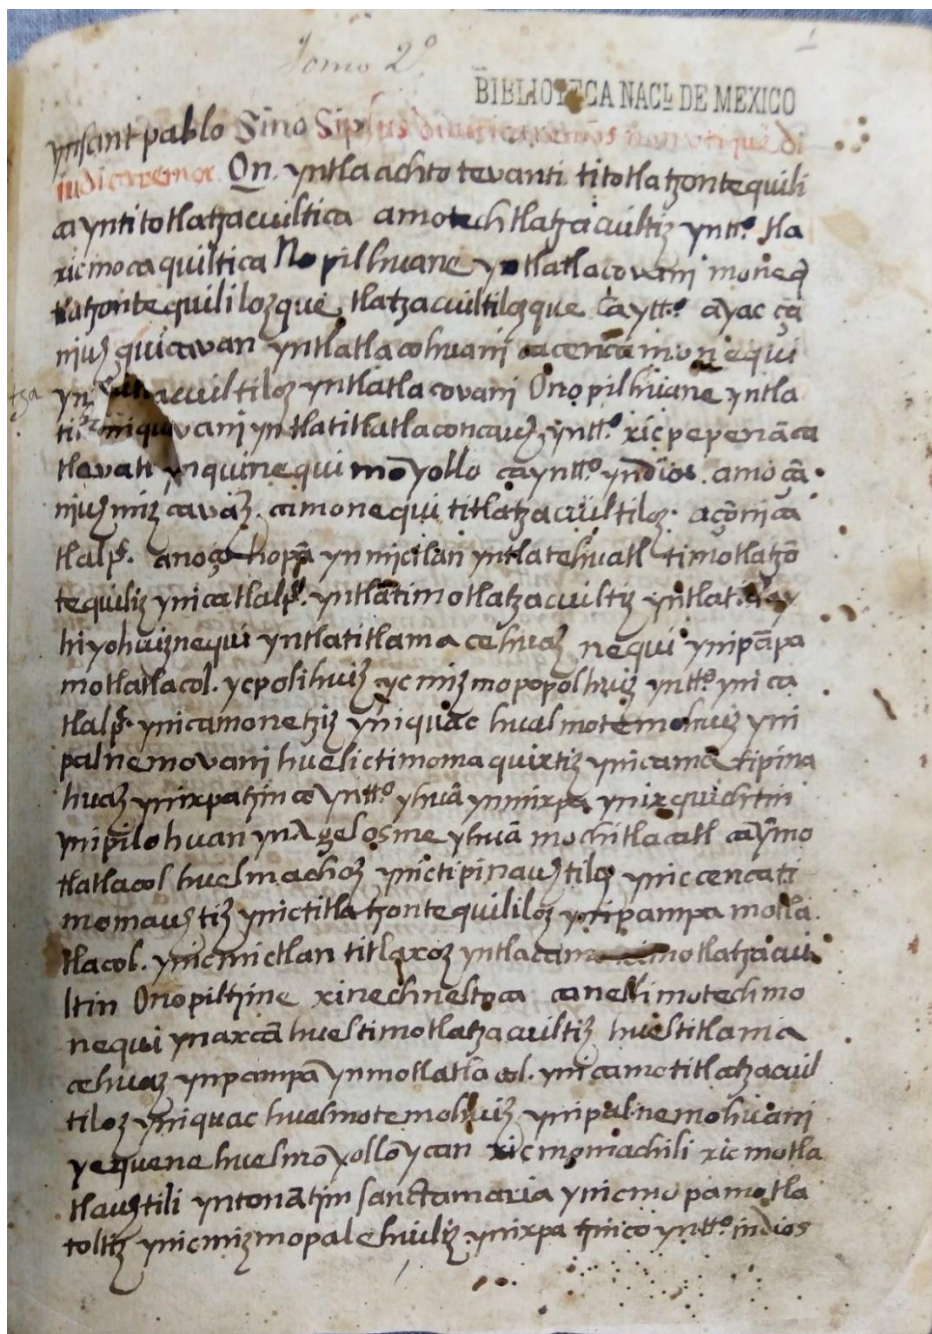 Tomo 2º
BIBLIOTECA NACL DE MEXICO
ynsant pablo Sino
iudicaremor. Qn. yntla achto tevanti titotlatzontequili
ca yntitotlatzacuiltica amotech tlatzacuiltiz yntt.º tla
xicmocaquiltica Nopilhuane yntlatlacovani moneq̄
tlatzontequililozque tlatzacuiltilozque Ca ytt.º ayac çā
niuȝ quicavan yntlatlacohuani cacencā monequi
yntlatzacuiltiloz yntlatlacovani Onopilhuane yntla
vani yntlatitlatlaconcauȝ yntt.º xicpepenāca
tlevatl ynquinequi mōyollo ca yntt.º yndios. amo çā
niuȝ miz cavaz. camonequi titlatzacuiltiloz. açonica
tlalp̄c. anoço nopā yn mictlan yntla tehuatl timotlatzō
tequiliz ynica tlalp̄c. yntlātimotlatzacuiltiz yntlat
hiyohuiznequi yntlatitlamacehuaz nequi ynipāpa
motlatlacol. ycpolihuiz yc miz mopopolhuiz yntt.º ynica
tlalp̄c. ynicamonetziz yniquac hualmotemohuiz yni
palnemovani huelictimomaquixtiz ynicamā tipina
huaz ynixpatzinco yntt.º yhuā ynmixpa ynixquichtin
ynipilohuan ynāgelosme yhuā mochitlacatl caȳmo
tlatlacol huelmachoz ynictipinauȝtiloz yniccencati
momauȝtiz ynictitlatzontequililoz ynipampa motla
tlacol. ynicmictlan titlaxoz yntlacam motlatzacui
ltin Onopiltzine xinechneltoca canelli motechmo
nequi ynaxcā hueltimotlatzacuiltiz hueltitlama
cehuaz ynpampā ynmotlatlacol. ynicamotitlatzacuil
tiloz yniquac hualmotemohuiz ynipalnemohuani
yequene huelmōyolloȳcan xicmomachili xicmotla
tlauȝtili yntonātzin sanctamaria ynicmopamotla
toltiz ynicmizmopalehuiliz ynixpatzinco yntt.º indios